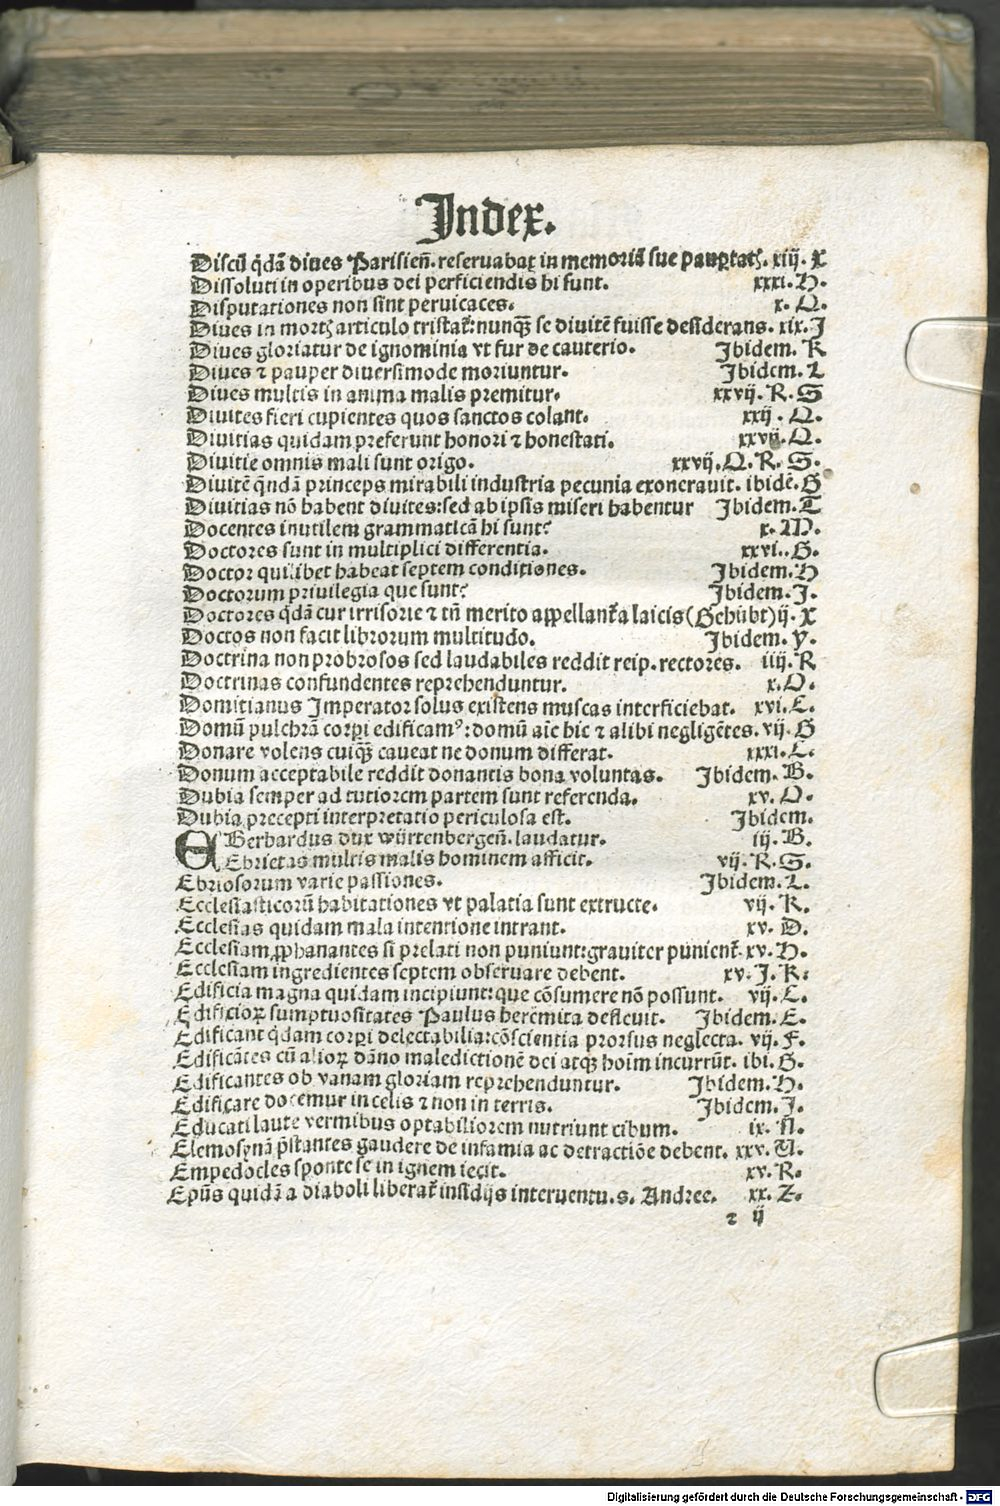 Index.
Discũ q̃dã diues Parisień. reseruabat̃ in memoriã sue paup̱tatꝭ. xiij. X
Dissoluti in operibus dei perficiendis hi sunt. xxxi. H.
Disputationes non sint peruicaces. x. Q.
Diues in mortꝭ articulo tristat̃: nunq̃ȝ se diuitẽ fuisse desiderans. xix. J
Diues gloriatur de ignominia vt fur de cauterio. Ibidem. K
Diues ⁊ pauper diuersimode moriuntur. Ibidem. L
Diues multis in anima malis premitur. xxvij. R. S
Diuites fieri cupientes quos sanctos colant. xxij. Q.
Diuitias quidam preferunt honori ⁊ honestati. xxvij. Q.
Diuitie omnis mali sunt origo. xxvij. Q. R. S.
Diuitẽ q̃ndã princeps mirabili industria pecunia exonerauit. ibidẽ. S
Diuitias nõ habent diuites: sed ab ipsis miseri habentur Ibidem. T
Docentes inutilem grammaticã hi sunt: x. M.
Doctores sunt in multiplici differentia. xxvi.. G.
Doctor quilibet habeat septem conditiones. Ibidem. H
Doctorum priuilegia que sunt: Ibidem. J.
Doctores q̃dã cur irrisorie ⁊ tñ merito appellant̃ a laicis (Gehübt) ij. X
Doctos non facit librorum multitudo. Ibidem. y.
Doctrina non probrosos sed laudabiles reddit reip. rectores. iiij. R
Doctrinas confundentes reprehenduntur. x. O.
Domitianus Imperator solus existens muscas interficiebat. xvi. E.
Domũ pulchrã corp̱i edificamꝰ: domũ aĩe hic ⁊ alibi negligẽtes. vij. G
Donare volens cuiq̃ȝ caueat ne donum differat. xxxi. C.
Donum acceptabile reddit donantis bona voluntas. Ibidem. B.
Dubia semper ad tutiorem partem sunt referenda. xv. O.
Dubia precepti interpretatio periculosa est. Ibidem.
EBerhardus dux würtenbergeñ. laudatur. iij. B.
Ebrietas multis malis hominem afficit. vij. R. S.
Ebriosorum varie passiones. Ibidem. L.
Ecclesiasticorũ habitationes vt palatia sunt extructe. vij. K.
Ecclesias quidam mala intentione intrant. xv. D.
Ecclesiam ꝓphanantes si prelati non puniunt: grauiter punient̃. xv. H.
Ecclesiam ingredientes septem obseruare debent. xv. J. K:
Edificia magna quidam incipiunt: que cõsumere nõ possunt. vij. C.
Edificioꝝ sumptuositates Paulus heremita defleuit. Ibidem. E.
Edificant q̃dam corp̱i delectabilia: cõscientia prorsus neglecta. vij. F.
Edificãtes cũ alioꝝ dãno maledictionẽ dei atq̃ȝ hoĩm incurrũt. ibi. G.
Edificantes ob vanam gloriam reprehenduntur. Ibidem. H.
Edificare docemur in celis ⁊ non in terris. Ibidem. J.
Educati laute vermibus optabiliorem nutriunt cibum. ix. N.
Elemosynã p̃stantes gaudere de infamia ac detractiõe debent. xxv. U.
Empedocles sponte se in ignem iecit. xv. R.
Ep̃us quidã a diaboli liberat̃ insidijs interuentu. s. Andree. xx. Z.
⁊ ij
Digitalisierung gefördert durch die Deutsche Forschungsgemeinschaft - DFG